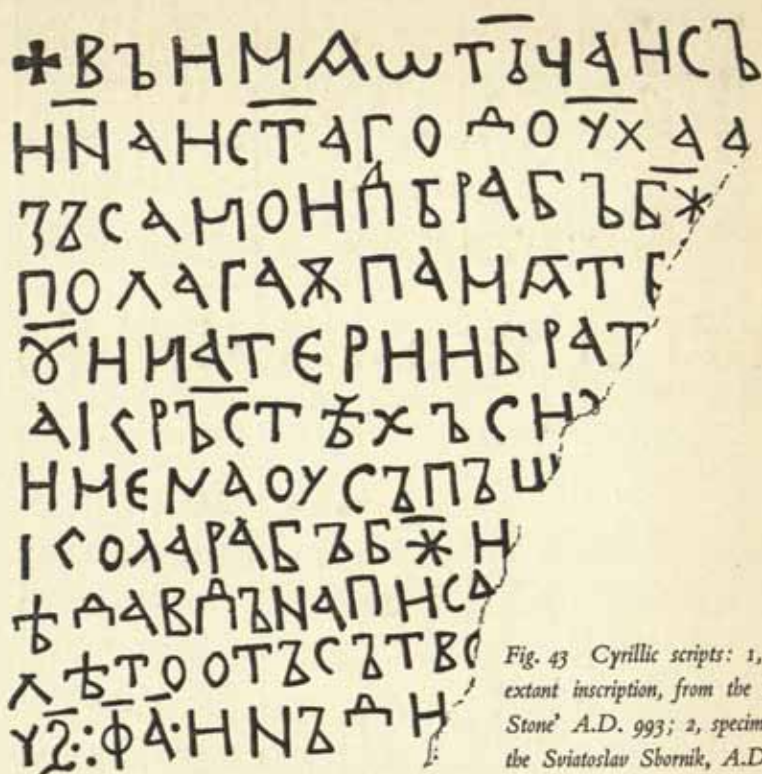 ✚ВЪНМѦѠТІЧАНСЪ
НN̄АНСТ̄АГОДОУХАА
ЗЪСАМОНД̄ПЪРАБЪБЖ
ПОЛАГАѪПАМѦТ
ꙊНМАТЕРННБРАТ
АІСРЪСТѢХЪСН
НМЕNАОУСЪПЪШ
ІСОЛАРАБЪБЖН
ѢДАВДЪNАПНСА
ЛѢТООТЪСЪТВО
УЅ҃:·Ф҃А҃·НNЪДН
Fig. 43 Cyrillic scripts: 1,
extant inscription, from the
Stone' A.D. 993; 2, specim
the Sviatoslav Sbornik, A.D